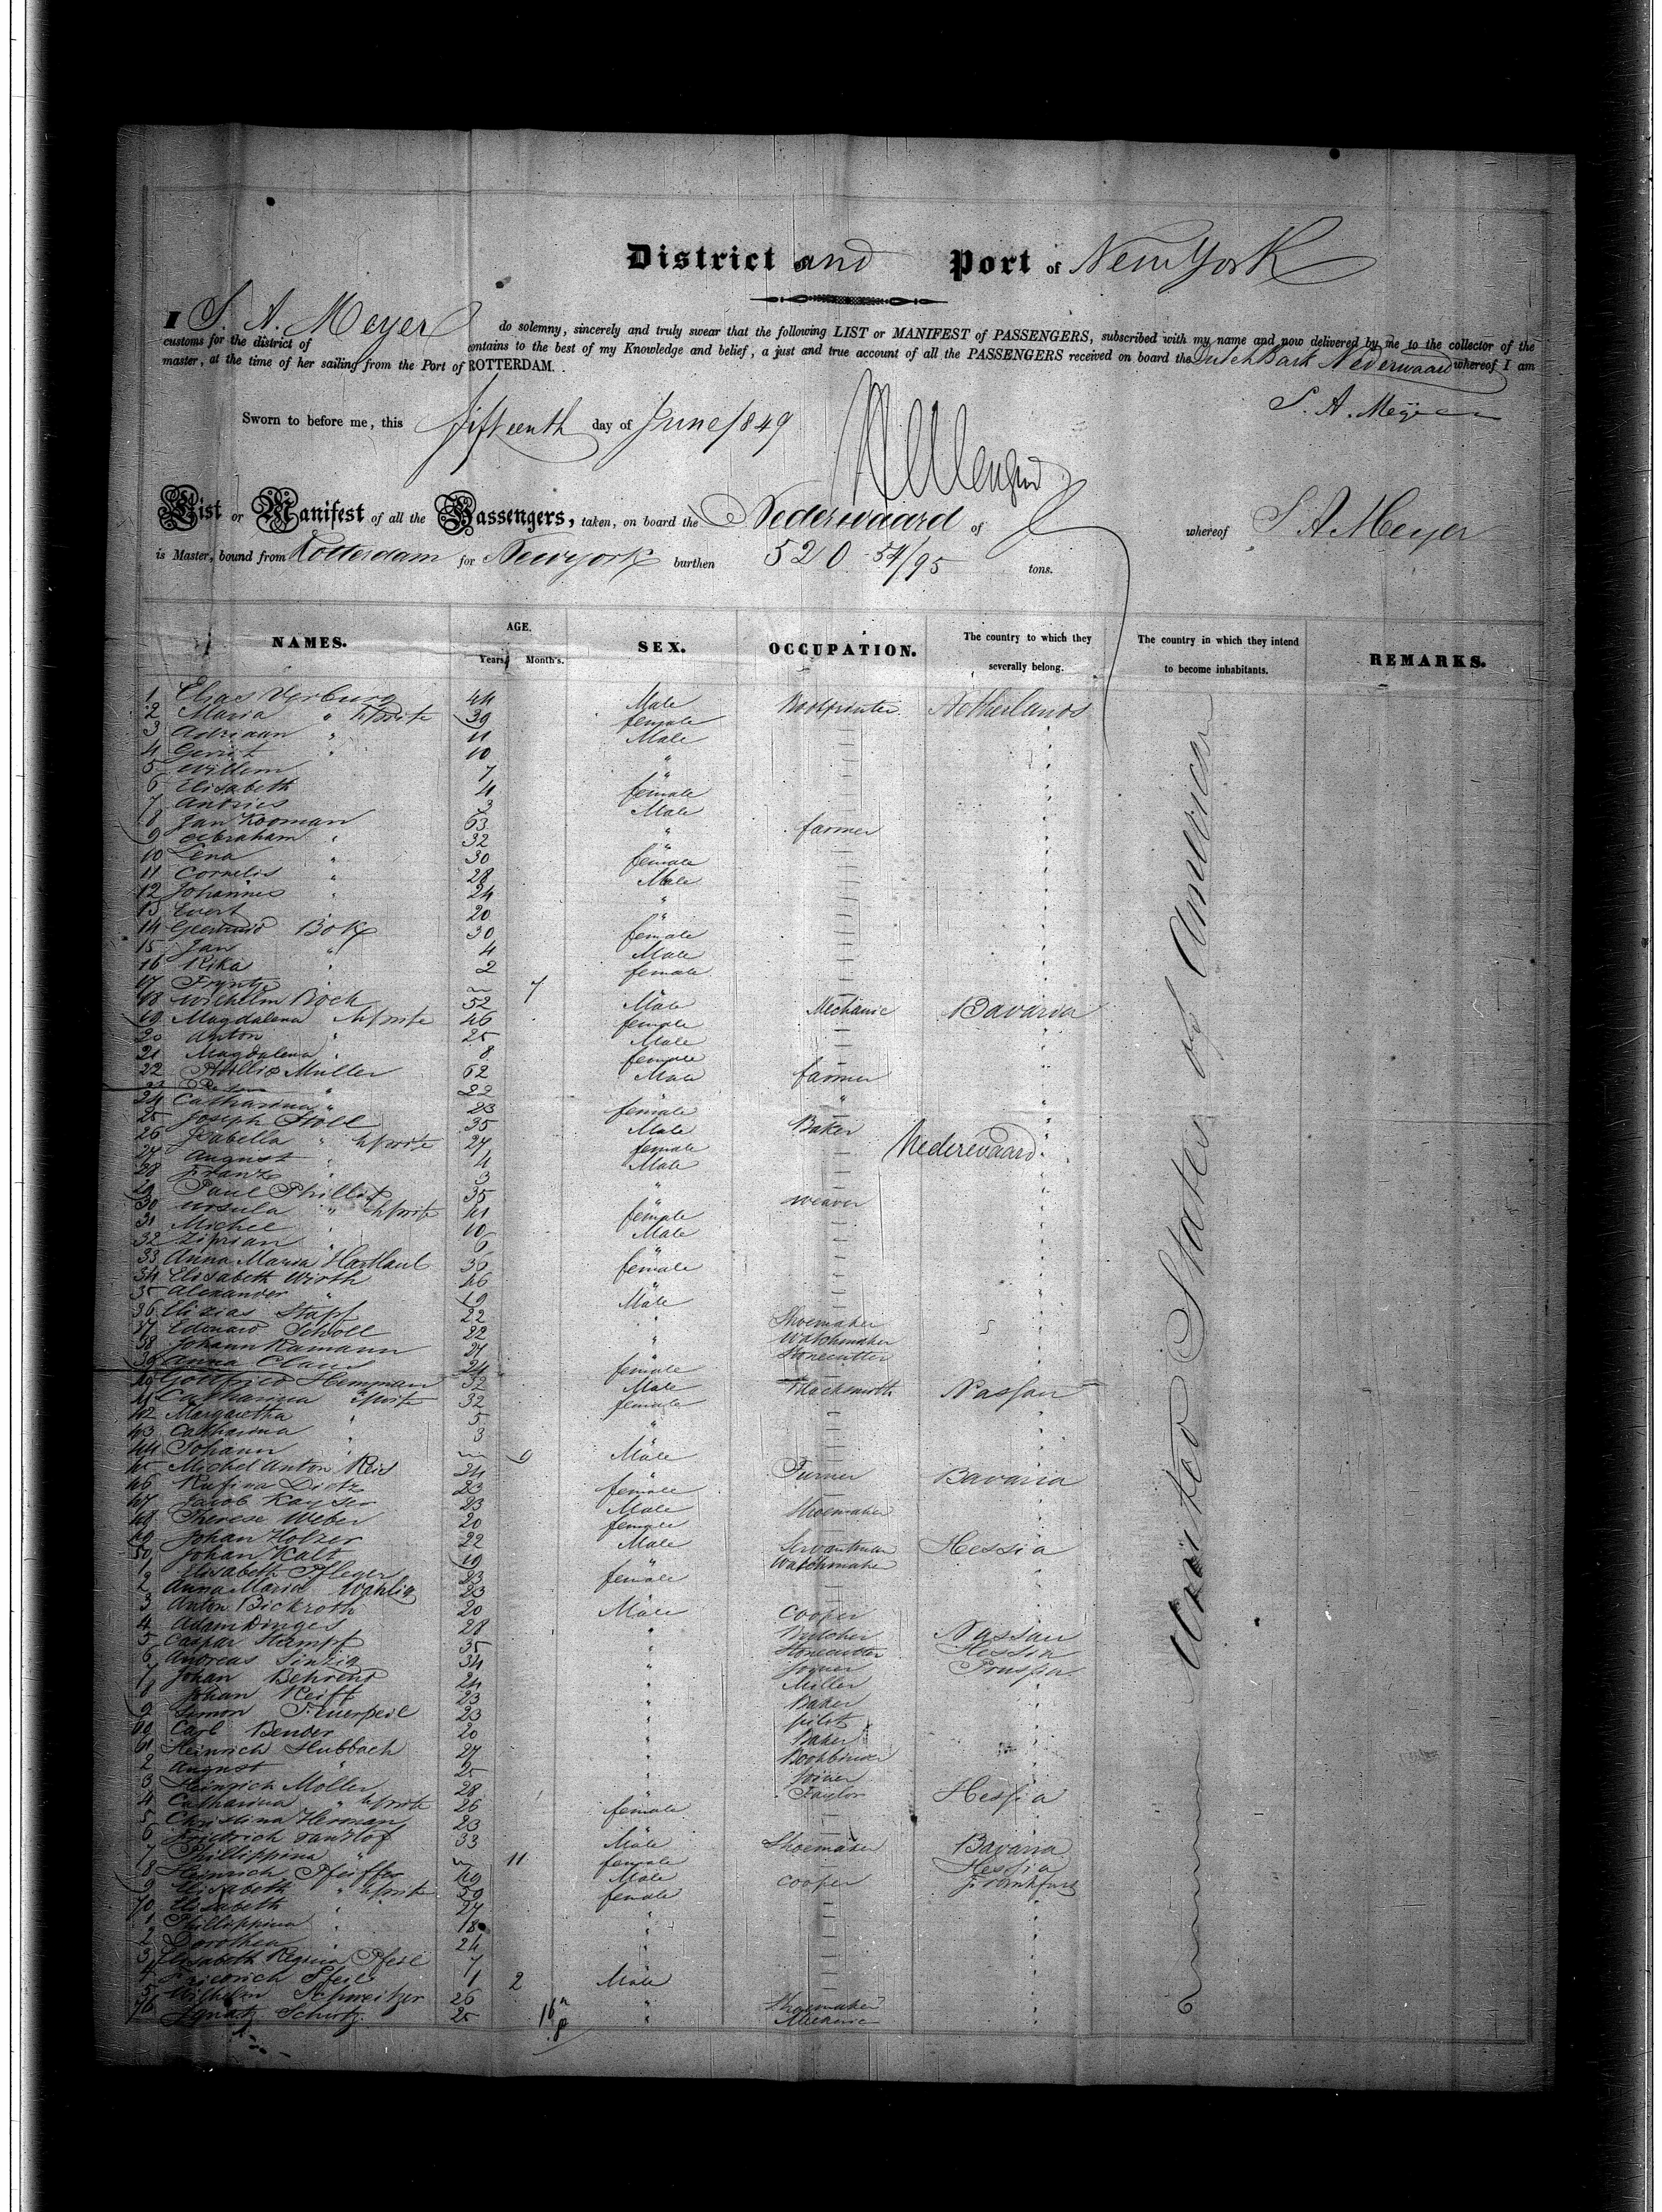 District and Port of New York
I S. A. Meyer do solemny, sincerely and truly swear that the following LIST or MANIFEST of PASSENGERS, subscribed with my name and now delivered by me to the collector of the
customs for the district of contains to the best of my Knowledge and belief, a just and true account of all the PASSENGERS received on board the Dutch Bark Nederwaard whereof I am
master, at the time of her sailing from the Port of ROTTERDAM.
S. A. Meyer
Sworn to before me, this fifteenth day of June 1849
List or Manifest of all the Passengers, taken, on board the Nederwaard of whereof S A Meyer
is Master, bound from Rotterdam for New york burthen 520 54/95 tons.
NAMES. AGE. Years. Month's. SEX. OCCUPATION. The country to which they severally belong. The country in which they intend to become inhabitants. REMARKS.
United States of America
1 Elias Verburg 44 Male Bookprinter Netherlands
2 Maria " 39 female
3 Adriaan " 11 Male
4 Gerrit " 10 "
5 Willem 7 "
6 Elisabeth 4 female
7 Andries 3 Male
8 Jan Kooman 63 " farmer
9 Abraham " 32 "
10 Lena " 30 female
11 Cornelis " 28 Male
12 Johannes " 24 "
13 Evert 20 "
14 Bok 30 female
15 Jan " 4 Male
16 Rika " 2 female
17 Tryntje 7
18 Wilhelm Boch 52 Male Mechanic Bavaria
19 Magdalena 46 female
20 Anton " 25 Male
21 Magdalena " 8 female
22 Phillip Muller 62 Male farmer
23 " 22 "
24 Catharina " 23 female
25 Joseph Stoll 35 Male Baker
26 Isabella " 27 female
Nederwaard
27 August " 4 Male
28 Frantz " 3 "
29 Paul Phillip 35 " weaver
30 Ursula " 41 female
31 Michel " 10 Male
32 Ziprian " 6 "
33 Anna Maria Hartlaub 36 female
34 Elisabeth Wirth 46 "
35 Alexander " 19 Male
36 Stapf 22 " Shoemaker
37 Edouard Scholl 22 " Watchmaker
38 Johann Ramann 21 Stonecutter
39 Anna Claus 24 female
40 Gottfried Hemman 32 Male Blacksmith Nassau
41 Catharina " 32 female
42 Margaretha " 5 "
43 Catharina " 3 "
44 Johann " 9 Male
45 Michel Anton Reis 24 " Turner Bavaria
46 Rufina Dietz 23 female
47 Jacob Kayser 23 Male Shoemaker
48 Therese Weber 20 female
49 Johan Holzer 22 Male Servantman Hessia
50 Johan Kalt 19 " Watchmaker
1 Elisabeth Pfleger 23 female
2 Anna Maria Wahlig 23 "
3 Anton Bickroth 20 Male Cooper
4 Adam Dinges 28 " Butcher Nassau
5 Caspar Stumpf 35 " Stonecutter Hessia
6 Andreas Sinzig 34 " Joiner Prussia
7 Johan Behrend 24 " Miller
8 Johan Reiff 23 " Baker
9 Simon 23 " pilot
60 Carl Bender 20 " Baker
61 Heinrich Hubbach 27 " Bookbinder
2 August " 25 " Joiner
3 Heinrich Moller 28 " Taylor Hessia
4 Catharina " 26 female
5 Christina Herman 23 "
6 Friedrich 33 Male Shoemaker Bavaria
7 Phillippina " 11 female Hessia
8 Heinrich Pfeiffer 49 Male Cooper Frankfurt
9 Elisabeth " 50 female
70 Elisabeth " 27 "
1 Phillippina " 18 "
2 Dorothea " 24 "
3 Elisabeth Regina Pfeil 7 "
4 Friedrich Pfeil 1 2 Male
5 Wilhelm Schweitzer 26 " Shoemaker
76 Ignatz Schutz 25 " Mechanic